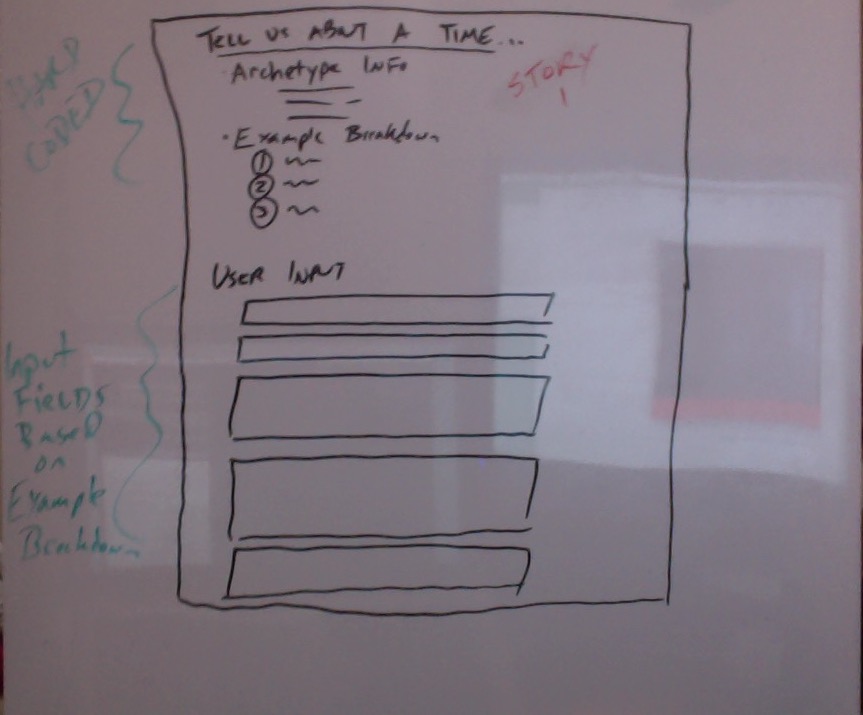 TELL US ABOUT A TIME...
STORY
1
· Archetype INFO
HARD
CODED
· Example Breakdown
1
2
3
USER INPUT
Input
FIELDS
BASED
on
Example
Breakdown